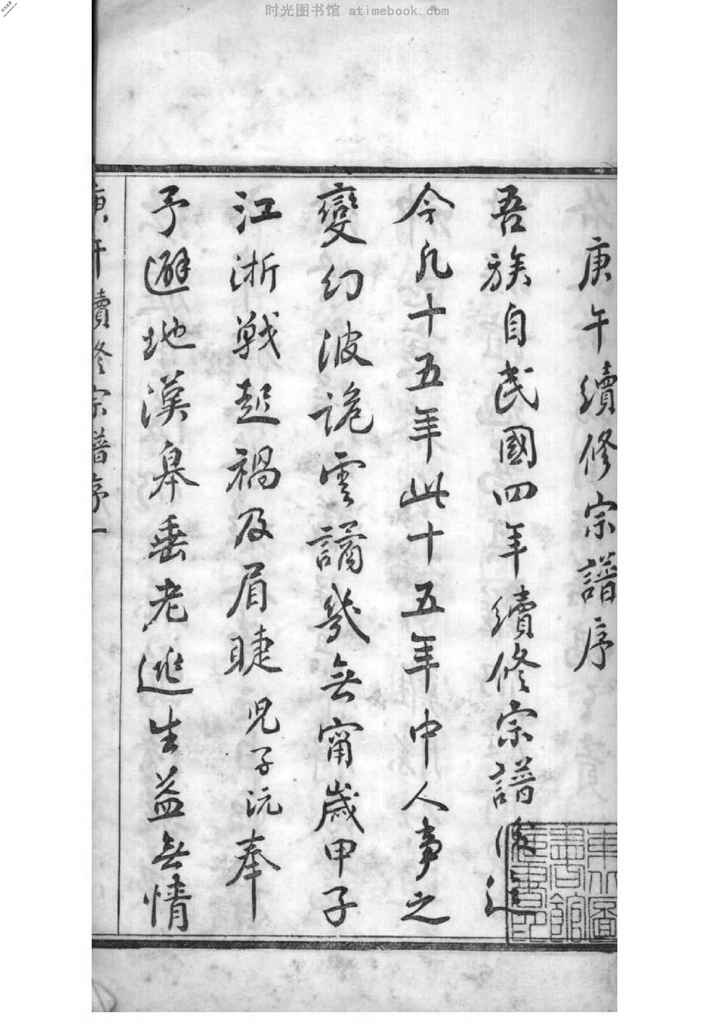 时光图书馆 atimebook.com
庚午續修宗譜序
吾族自民國四年續修宗譜後迄
今凡十五年此十五年中人事之
變幻波詭雲譎幾無甯歲甲子
江浙戰起禍及眉睫兒子沅奉
予避地漢皋垂老逃生益無情
庚午續修宗譜序一